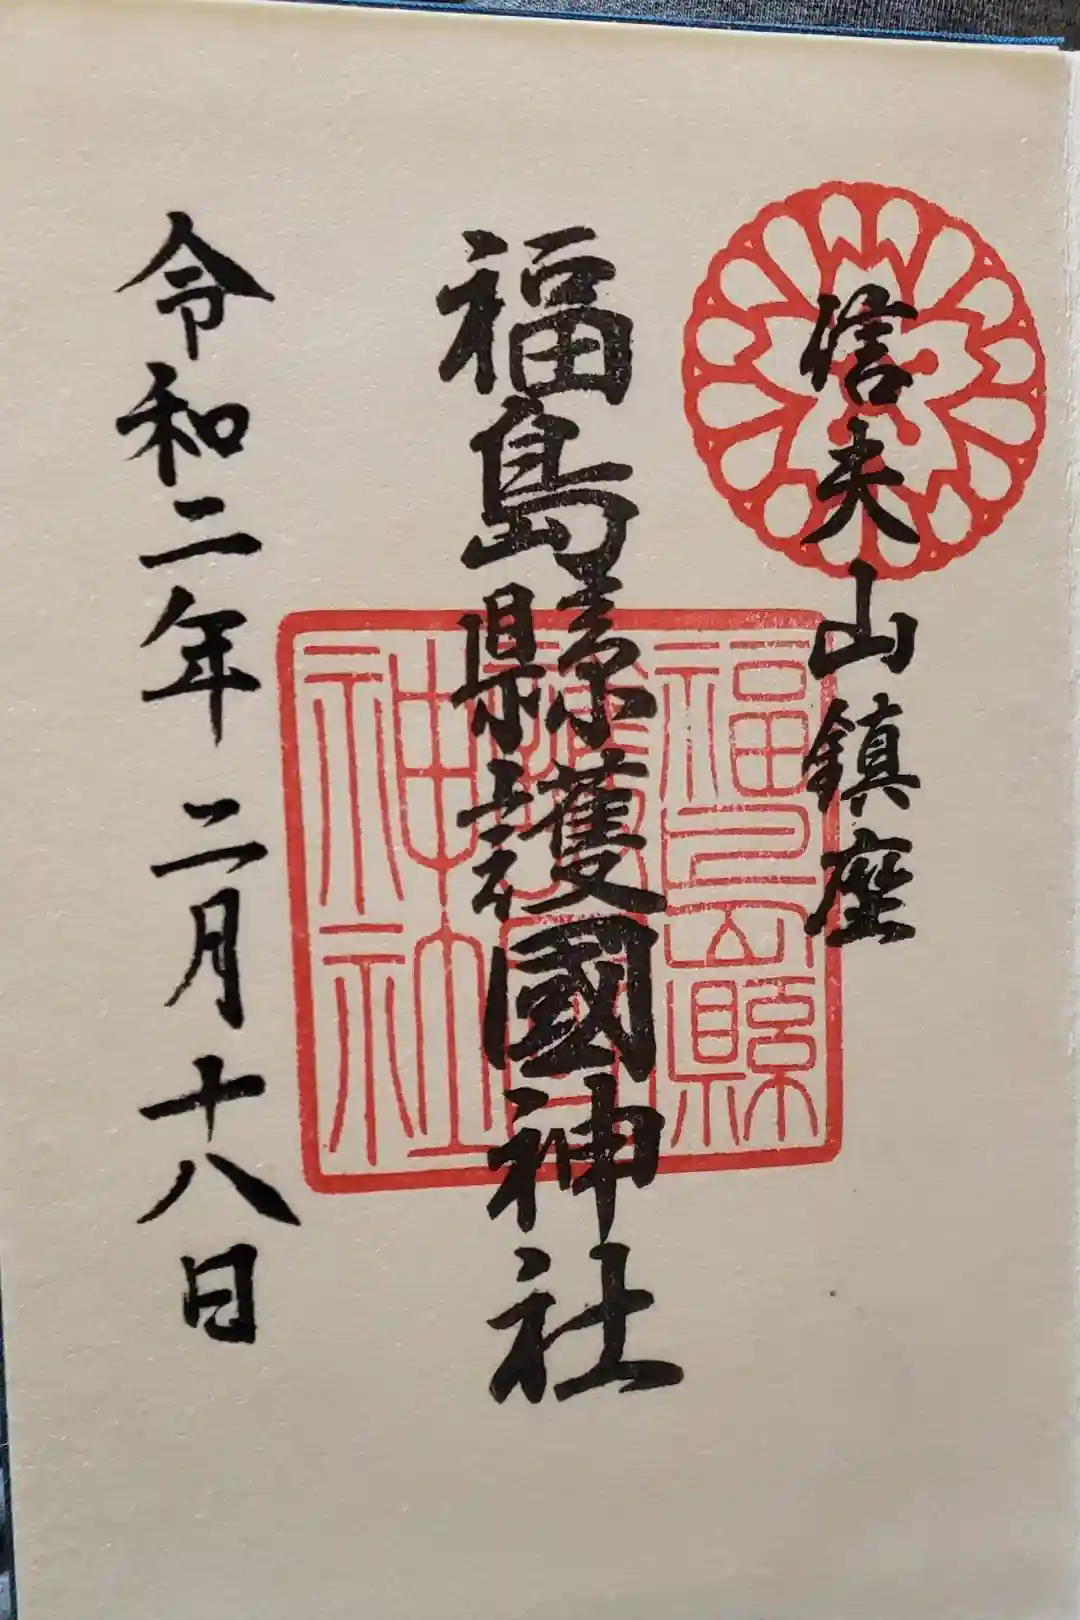 信夫山鎮座
福島縣護國神社
福島縣
護國
神社
令和二年二月十八日